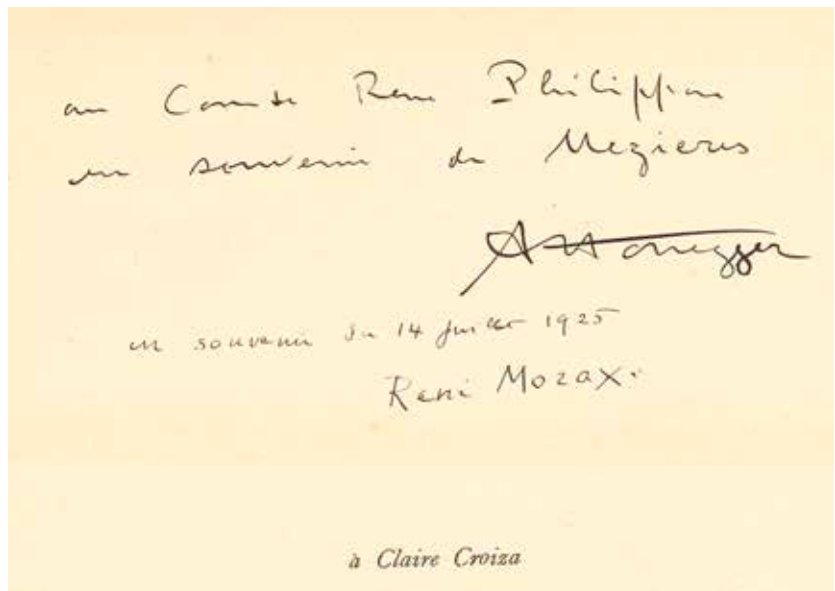 au Comte René Philippon
en souvenir de Mezieres
AHonegger
en souvenir du 14 juillet 1925
René Morax.
à Claire Croiza